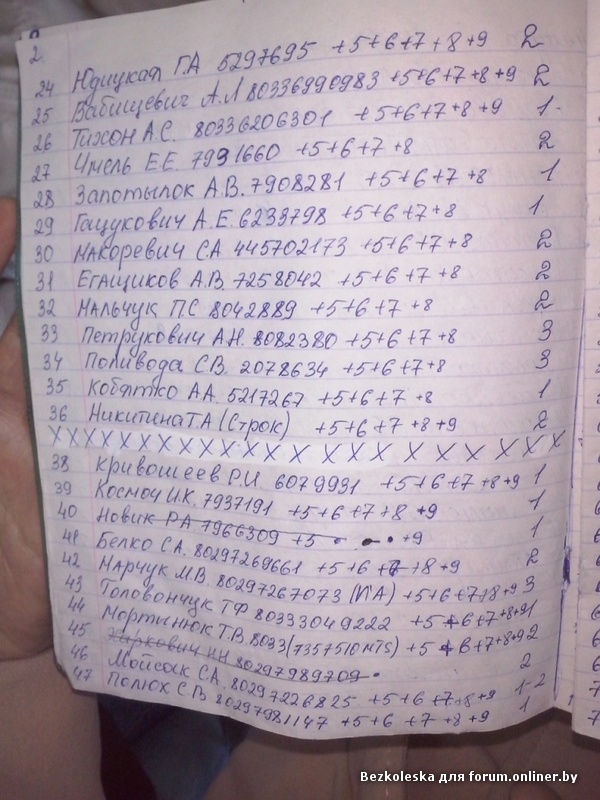 2.
24 Юдицкая Г.А 5297695 +5+6+7+8+9 2
25 Бабицевич А.Л 80336990983 +5+6+7+8+9 2
26 Тихон А.С. 80336206301 +5+6+7+8+9 1
27 Чмель Е.Е. 7991660 +5+6+7+8 2
28 Запотылок А.В. 7908281 +5+6+7+8 1
29 Гацукович А.Е. 6239798 +5+6+7+8 1
30 Макоревич С.А 445702173 +5+6+7+8 2
31 Егащиков А.В. 7258042 +5+6+7+8 2
32 Мальчук П.С 8042889 +5+6+7+8 2
33 Петрукович А.Н. 8082380 +5+6+7+8 3
34 Поливода С.В. 2078634 +5+6+7+8 3
35 Кобятко А.А. 5217267 +5+6+7+8 1
36 Никитина Т.А (Строк) +5+6+7+8+9 2
ХХХХХХХХХХХХХХХХХХХХХХХХХХ
38 Кривошеев Р.И. 6079931 +5+6+7+8+9 1
39 Космоч И.К. 7937191 +5+6+7+8+9 1
40 Новик Р.А 7966309 +5 +9 1
41 Белко С.А. 80297269661 +5+6+7+8+9
42 Марчук М.В. 80297267073 +5+6+7+8+9 2
43 Головончук Т.Ф 80333049222 +5+6+7+8+9 3
44 Мортынюк Т.В. 8033(735+510 MTS) +5+6+7+8+9 1
45 И.Н 80297989709 2
46 Мойсак С.А. 80297226825 +5+6+7+8+9 2
47 Полюх С.В 80297981147 +5+6+7+8+9 1-2
1
Bezkoleska для forum.onliner.by